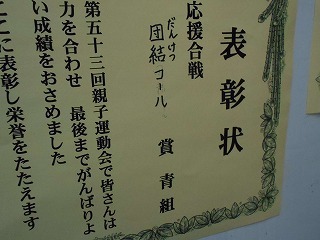 表彰状
賞 青組
応援合戦
だんけつ
団結コール
第五十三回親子運動会で皆さんは
力を合わせ 最後までがんばりよ
い成績をおさめました
ここに表彰し栄誉をたたえます